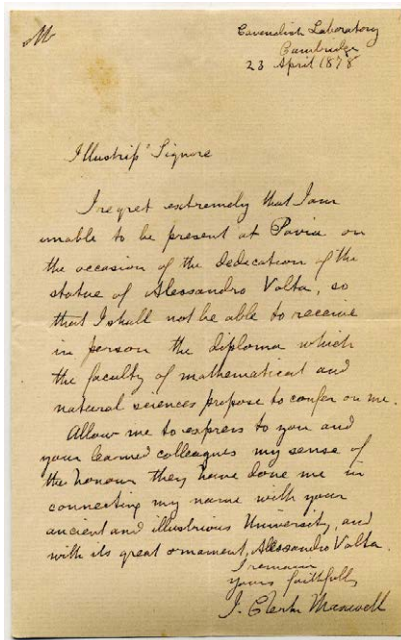 Cavendish Laboratory
Cambridge
23 April 1878
Illustriss° Signore
I regret extremely that I am
unable to be present at Pavia on
the occasion of the dedication of the
statue of Alessandro Volta, so
that I shall not be able to receive
in person the diploma which
the faculty of mathematical and
natural sciences propose to confer on me.
Allow me to express to you and
your learned colleagues my sense of
the honour they have done me in
connecting my name with your
ancient and illustrious University, and
with its great ornament, Alessandro Volta.
I remain
yours faithfully
J. Clerk Maxwell